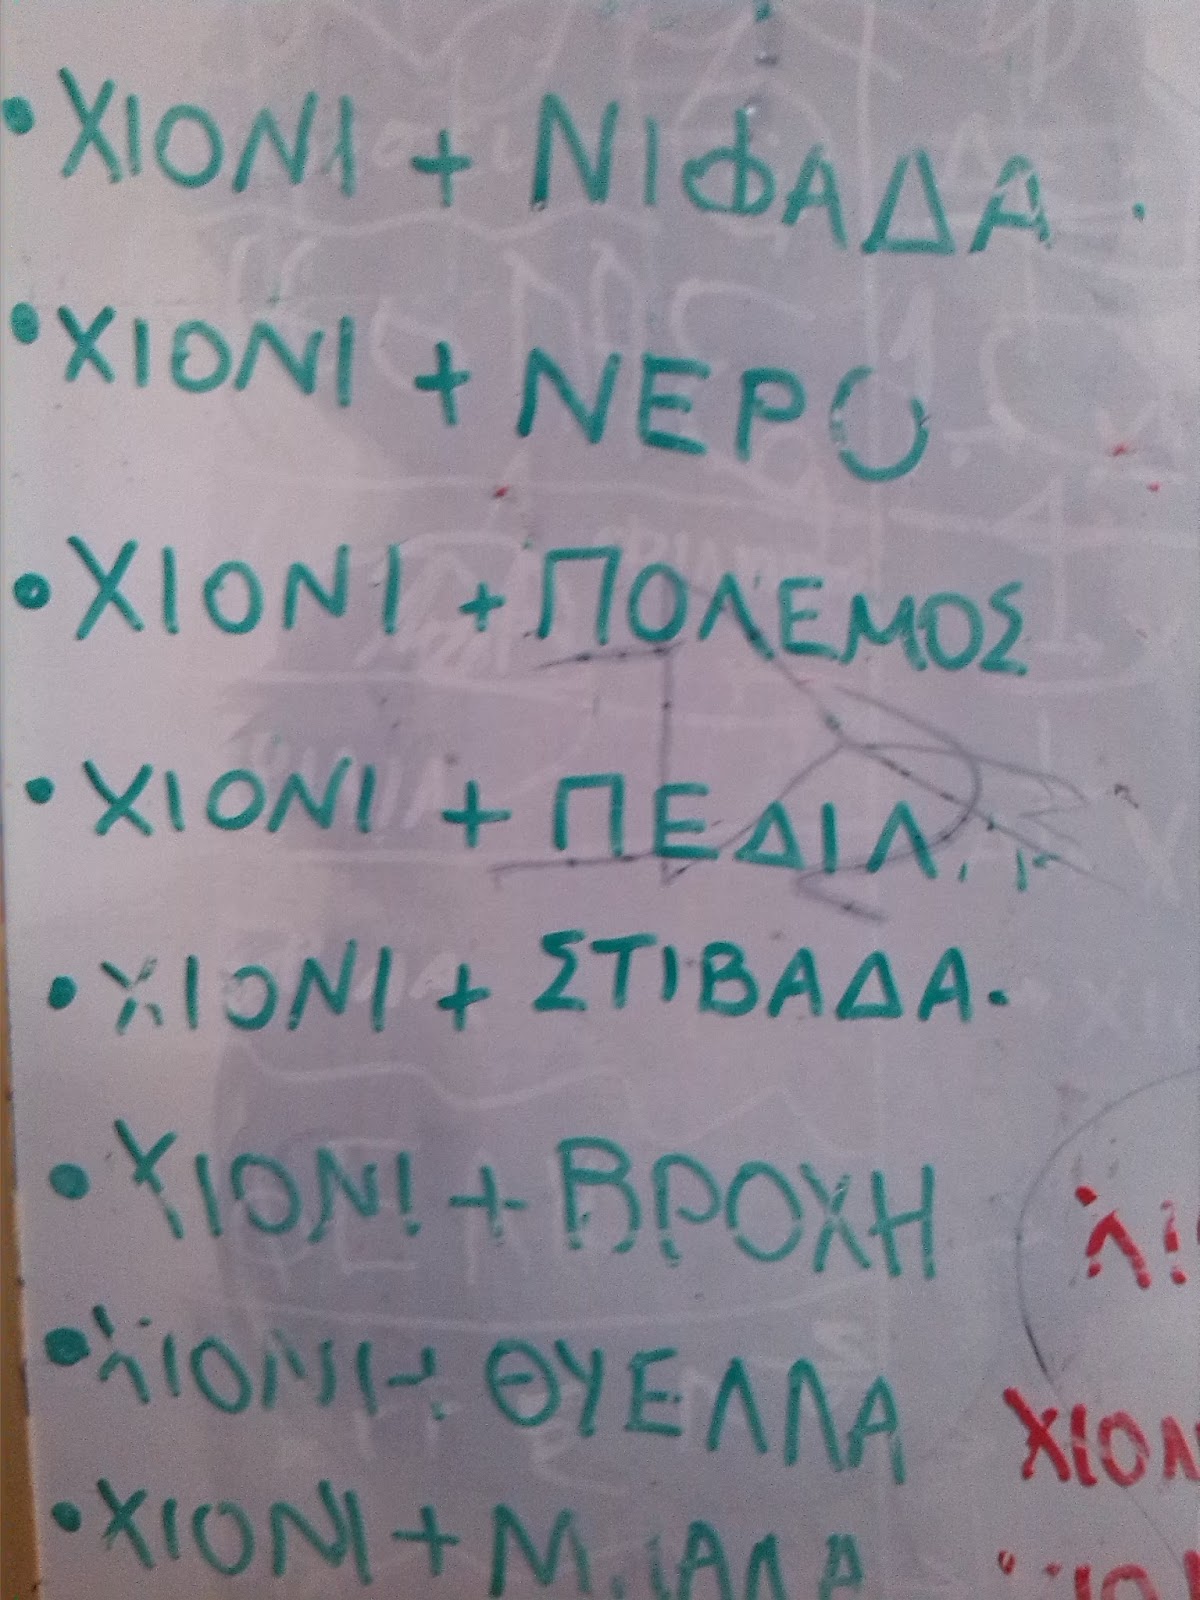 • ΧΙΟΝΙ + ΝΙΦΑΔΑ.
• ΧΙΟΝΙ + ΝΕΡΟ
• ΧΙΟΝΙ + ΠΟΛΕΜΟΣ
• ΧΙΟΝΙ +
• ΧΙΟΝΙ + ΣΤΙΒΑΔΑ.
• ΧΙΟΝΙ + ΒΡΟΧΗ
• ΧΙΟΝΙ + ΘΥΕΛΛΑ
• ΧΙΟΝΙ +